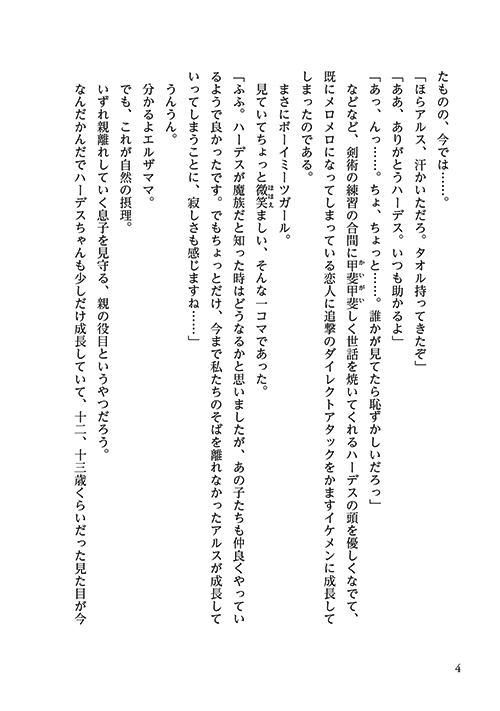 たものの、今では……。
「ほらアルス、汗かいただろ。タオル持ってきたぞ」
「ああ、ありがとうハーデス。いつも助かるよ」
「あっ、んっ……。ちょ、ちょっと……。誰かが見てたら恥ずかしいだろっ」
などなど、剣術の練習の合間に甲斐甲斐しく世話を焼いてくれるハーデスの頭を優しくなでて、
既にメロメロになってしまっている恋人に追撃のダイレクトアタックをかますイケメンに成長して
しまったのである。
まさにボーイミーツガール。
見ていてちょっと微笑ましい、そんな一コマであった。
「ふふ。ハーデスが魔族だと知った時はどうなるかと思いましたが、あの子たちも仲良くやってい
るようで良かったです。でもちょっとだけ、今まで私たちのそばを離れなかったアルスが成長して
いってしまうことに、寂しさも感じますね……」
うんうん。
分かるよエルザママ。
でも、これが自然の摂理。
いずれ親離れしていく息子を見守る、親の役目というやつだろう。
なんだかんだでハーデスちゃんも少しだけ成長していて、十二、十三歳くらいだった見た目が今
4